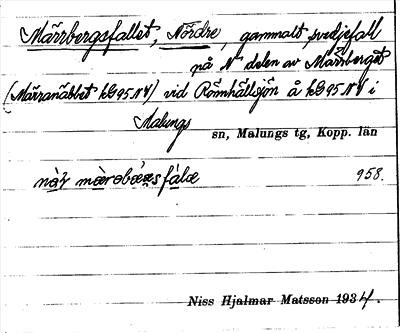 Märrbergsfallet, Nordre, gammalt svedjefall
på N delen av Märrberget
(Märranäbbet kG95NV) vid Römhällsjön å kG95NV i
Malungs
sn, Malungs tg, Kopp. län
958.
Niss Hjalmar Matsson 1934.